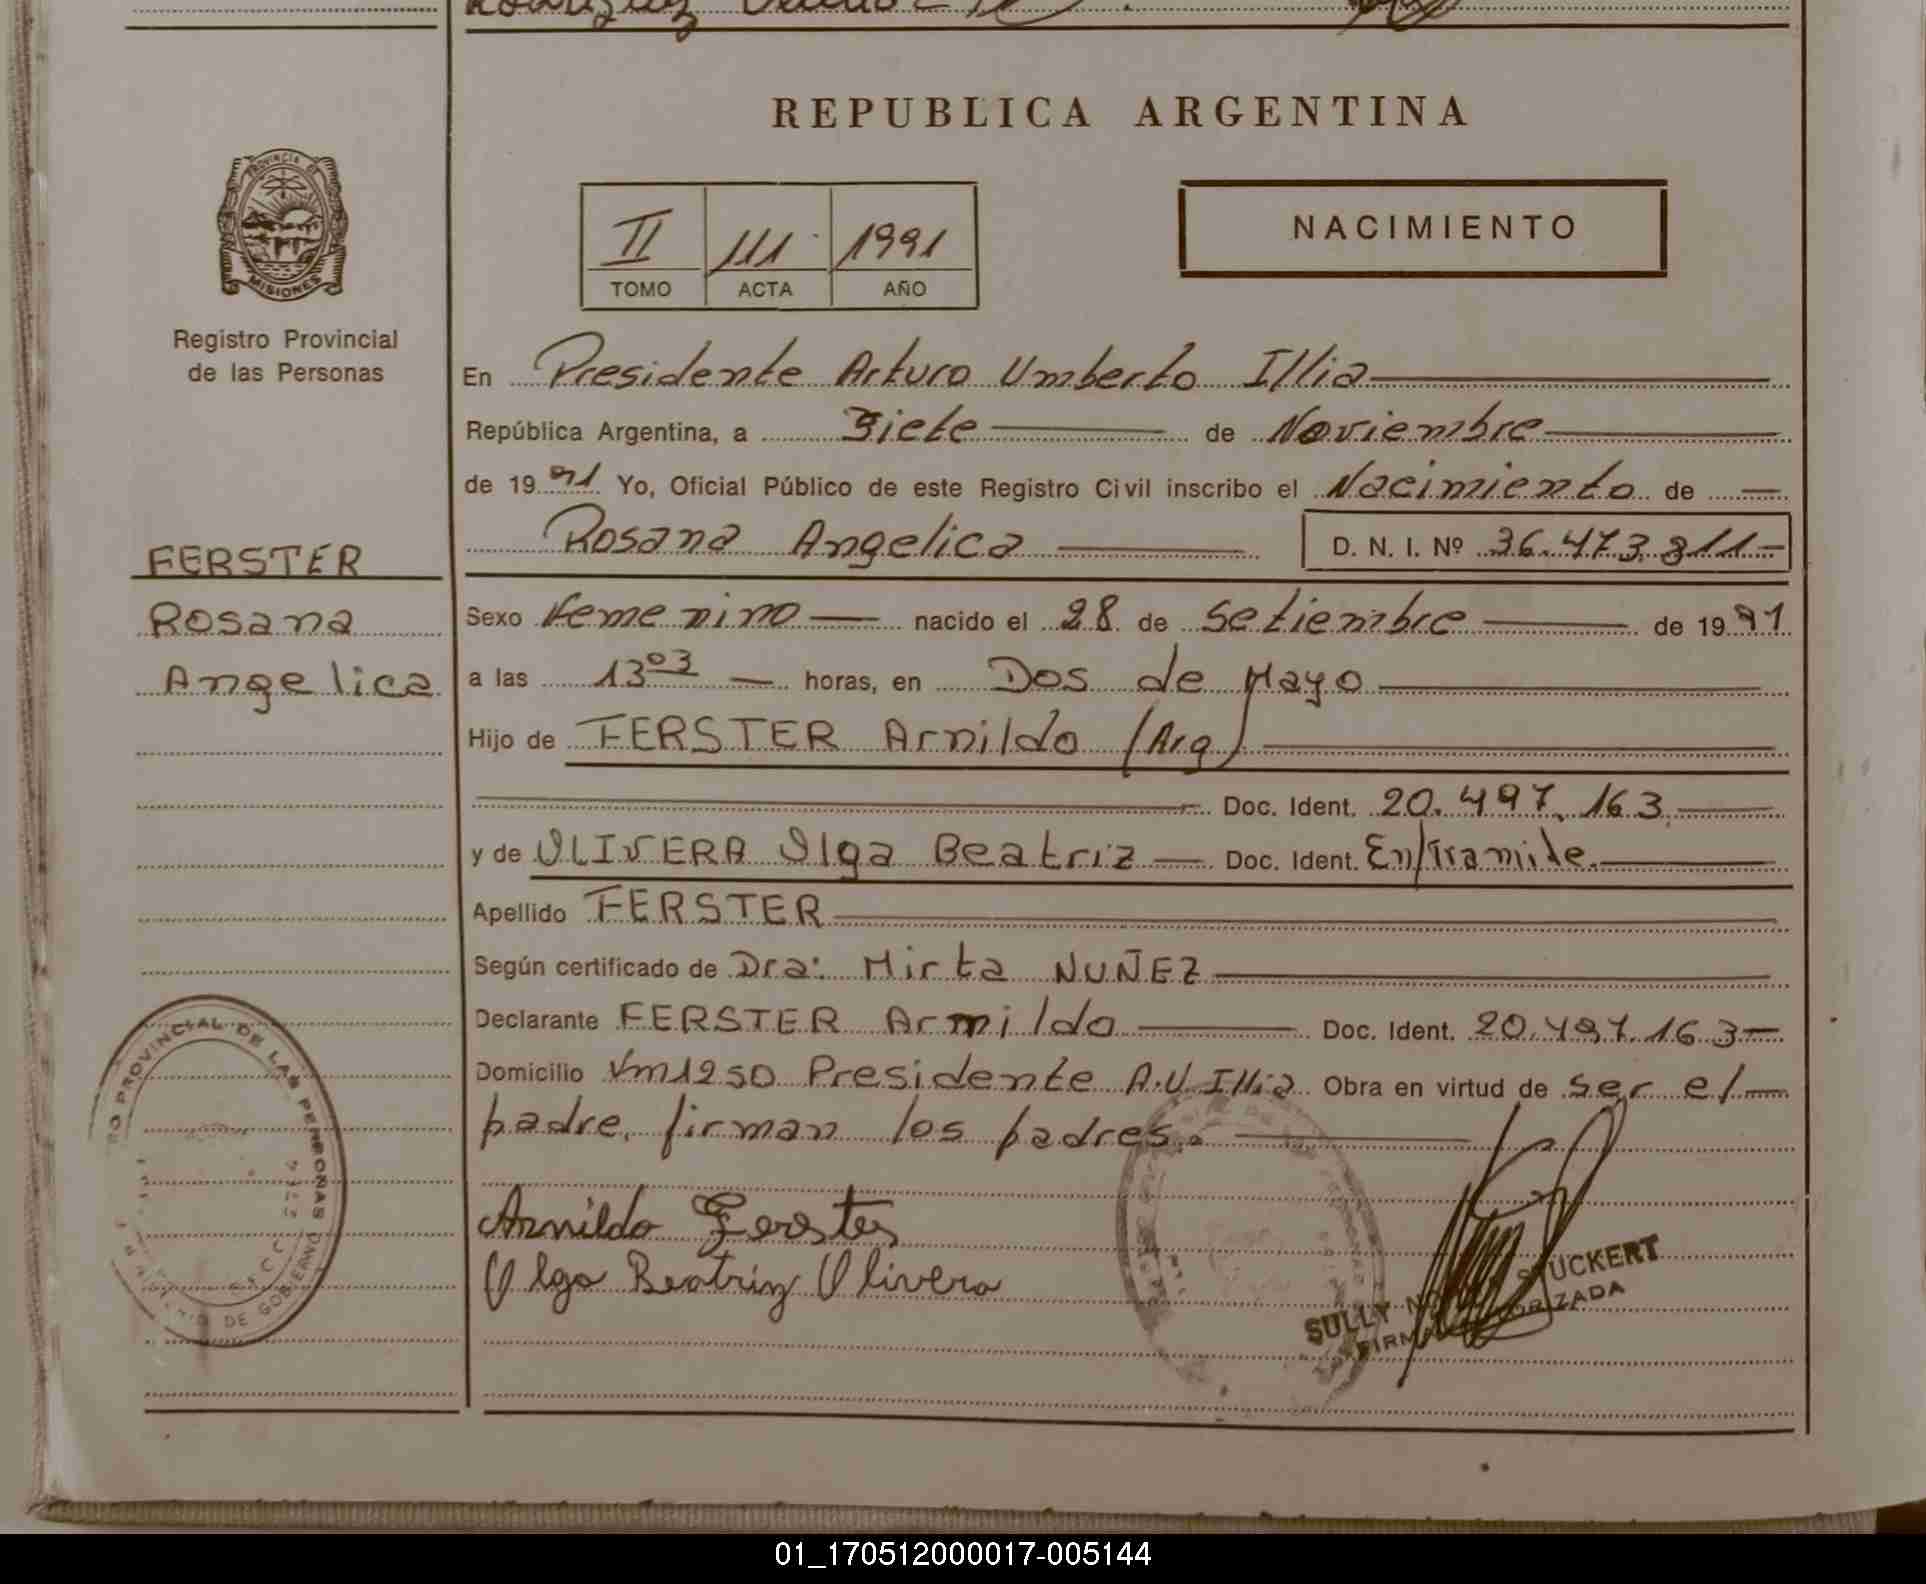 REPUBLICA ARGENTINA
PROVINCIA DE
MISIONES
Registro Provincial
de las Personas
II 111 1991
TOMO ACTA AÑO
NACIMIENTO
En Presidente Arturo Umberto Illia
República Argentina, a Siete de Noviembre
de 1991 Yo, Oficial Público de este Registro Civil inscribo el Nacimiento de
Rosana Angelica D. N. I. Nº 36.473.811
FERSTER
Rosana
Angelica
Sexo Femenino nacido el 28 de Setiembre de 1991
a las 13 03 horas, en Dos de Mayo
Hijo de FERSTER Arnildo (Arg)
Doc. Ident. 20.497.163
y de OLIVERA Olga Beatriz Doc. Ident. En/Tramite.
Apellido FERSTER
Según certificado de Dra: Mirta NUÑEZ
Declarante FERSTER Arnildo Doc. Ident. 20.497.163
Domicilio Km1250 Presidente A.U. Illia Obra en virtud de ser el
padre, firman los padres.
Arnildo Ferster
Olga Beatriz Olivera
PROVINCIAL DE LAS PERSONAS
DE GOBIERNO
SULLY STUCKERT
FIRMA AUTORIZADA
01_170512000017-005144